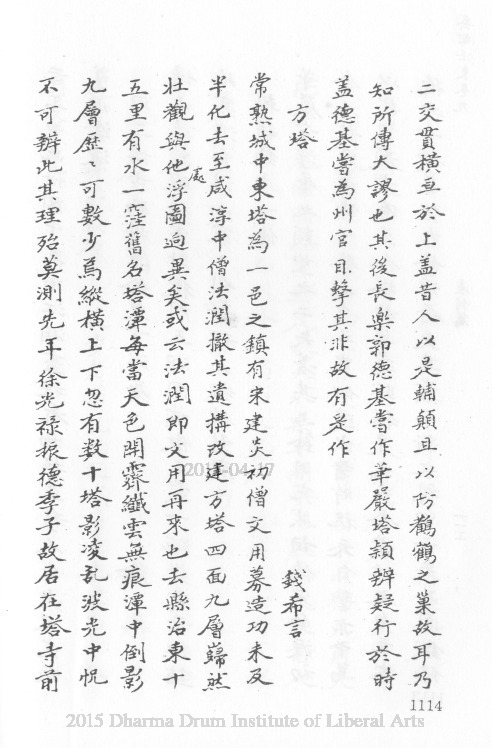 二交貫橫亘於上盖昔人以是輔顛且以防鸛鶴之巢故耳乃
知所傳大謬也其後長樂郭德基嘗作華嚴塔穎辨疑行於時
盖德基嘗為州官目擊其非故有是作
方塔
錢希言
常熟城中東塔為一邑之鎮有宋建炎初僧文用募造功未及
半化去至咸淳中僧法潤撤其遺搆改建方塔四面九層巋然
壯觀與他處浮圖逈異矣或云法潤即文用再來也去縣治東十
五里有水一窪舊名塔潭每當天色開霽纖雲無痕潭中倒影
九層歷〻可數少焉縱橫上下忽有数十塔影凌乱波光中怳
不可辨此其理殆莫測先年徐光祿振德季子故居在塔寺前
1114
2015-04-17
2015 Dharma Drum Institute of Liberal Arts